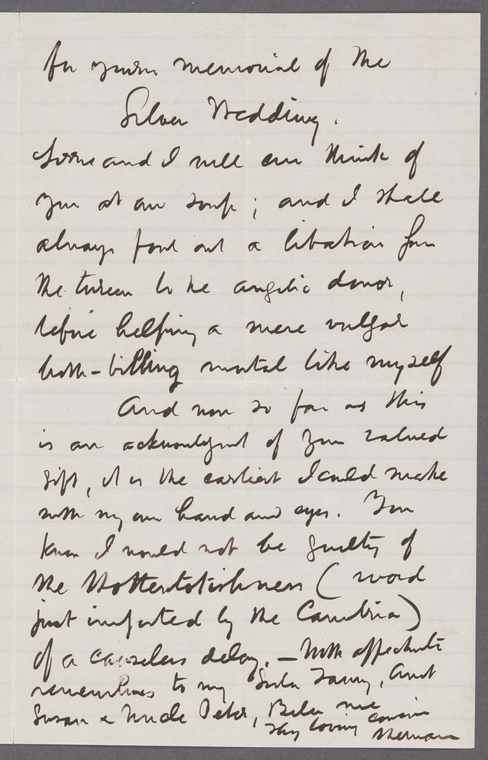 for your memorial of the
Silver Wedding.
and I will ever think of
you at our soup; and I shall
always pour out a libation from
the tureen to the angelic donor,
before helping a mere vulgar
broth-bibbing mortal like myself
And now so far as this
is an acknowledgment of your valued
gift, it is the earliest I could make
with my own hand and eyes. You
know I would not be guilty of
the Hottentotishness (word
just imported by the Cambria)
of a causeless delay. — With affectionate
remembrances to my Aunt
Susan & Uncle Peter, me
thy loving cousin